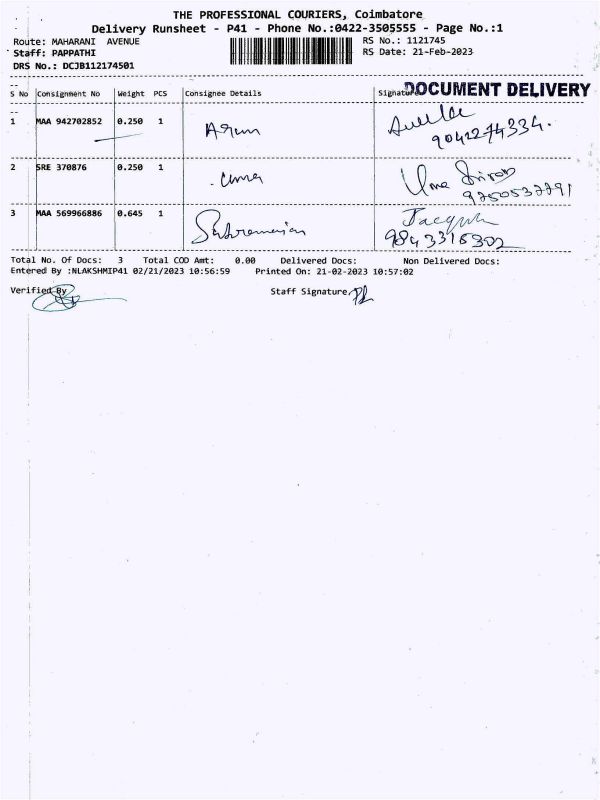 THE PROFESSIONAL COURIERS, Coimbatore
Delivery Runsheet - P41 - Phone No.:0422-3505555 - Page No.:1
Route: MAHARANI AVENUE RS No.: 1121745
Staff: PAPPATHI RS Date: 21-Feb-2023
DRS No.: DCJB112174501
DOCUMENT DELIVERY
S No Consignment No Weight PCS Consignee Details Signature
1 MAA 942702852 0.250 1 Arun
9041274334.
2 SRE 370876 0.250 1 Uma Uma
3 MAA 569966886 0.645 1 Subramanian
9843316302
Total No. Of Docs: 3 Total COD Amt: 0.00 Delivered Docs: Non Delivered Docs:
Entered By :NLAKSHMIP41 02/21/2023 10:56:59 Printed On: 21-02-2023 10:57:02
Verified By Staff Signature